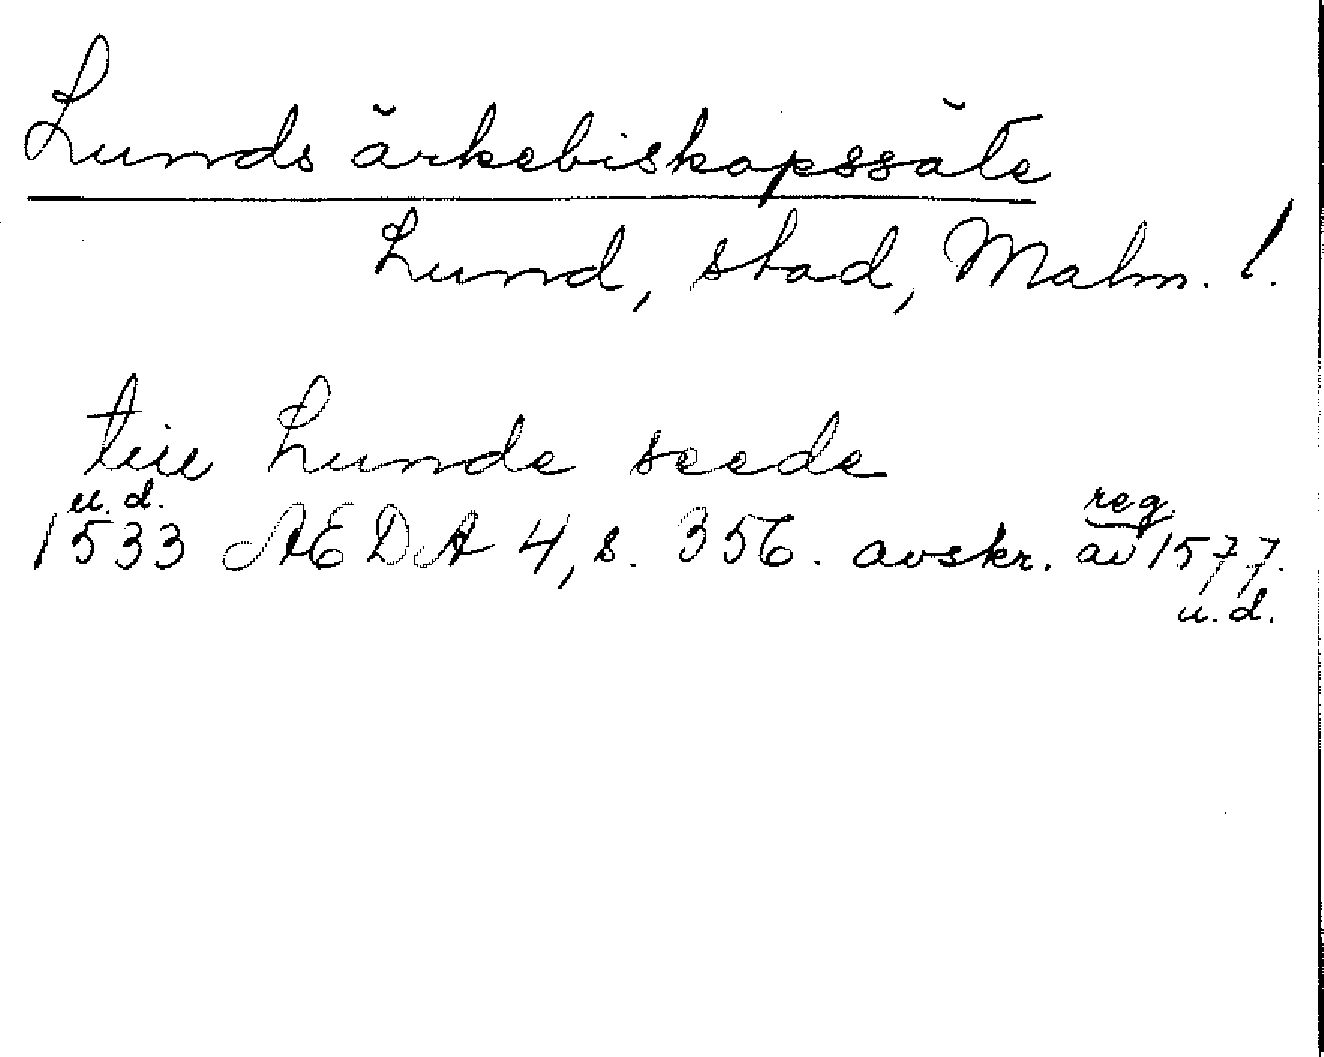 Lunds ärkebiskopssäte
Lund, stad, Malm. l.
till Lunde seede
u. d.
reg.
1533 AEDA 4, s. 356. avskr. av 1577.
u. d.